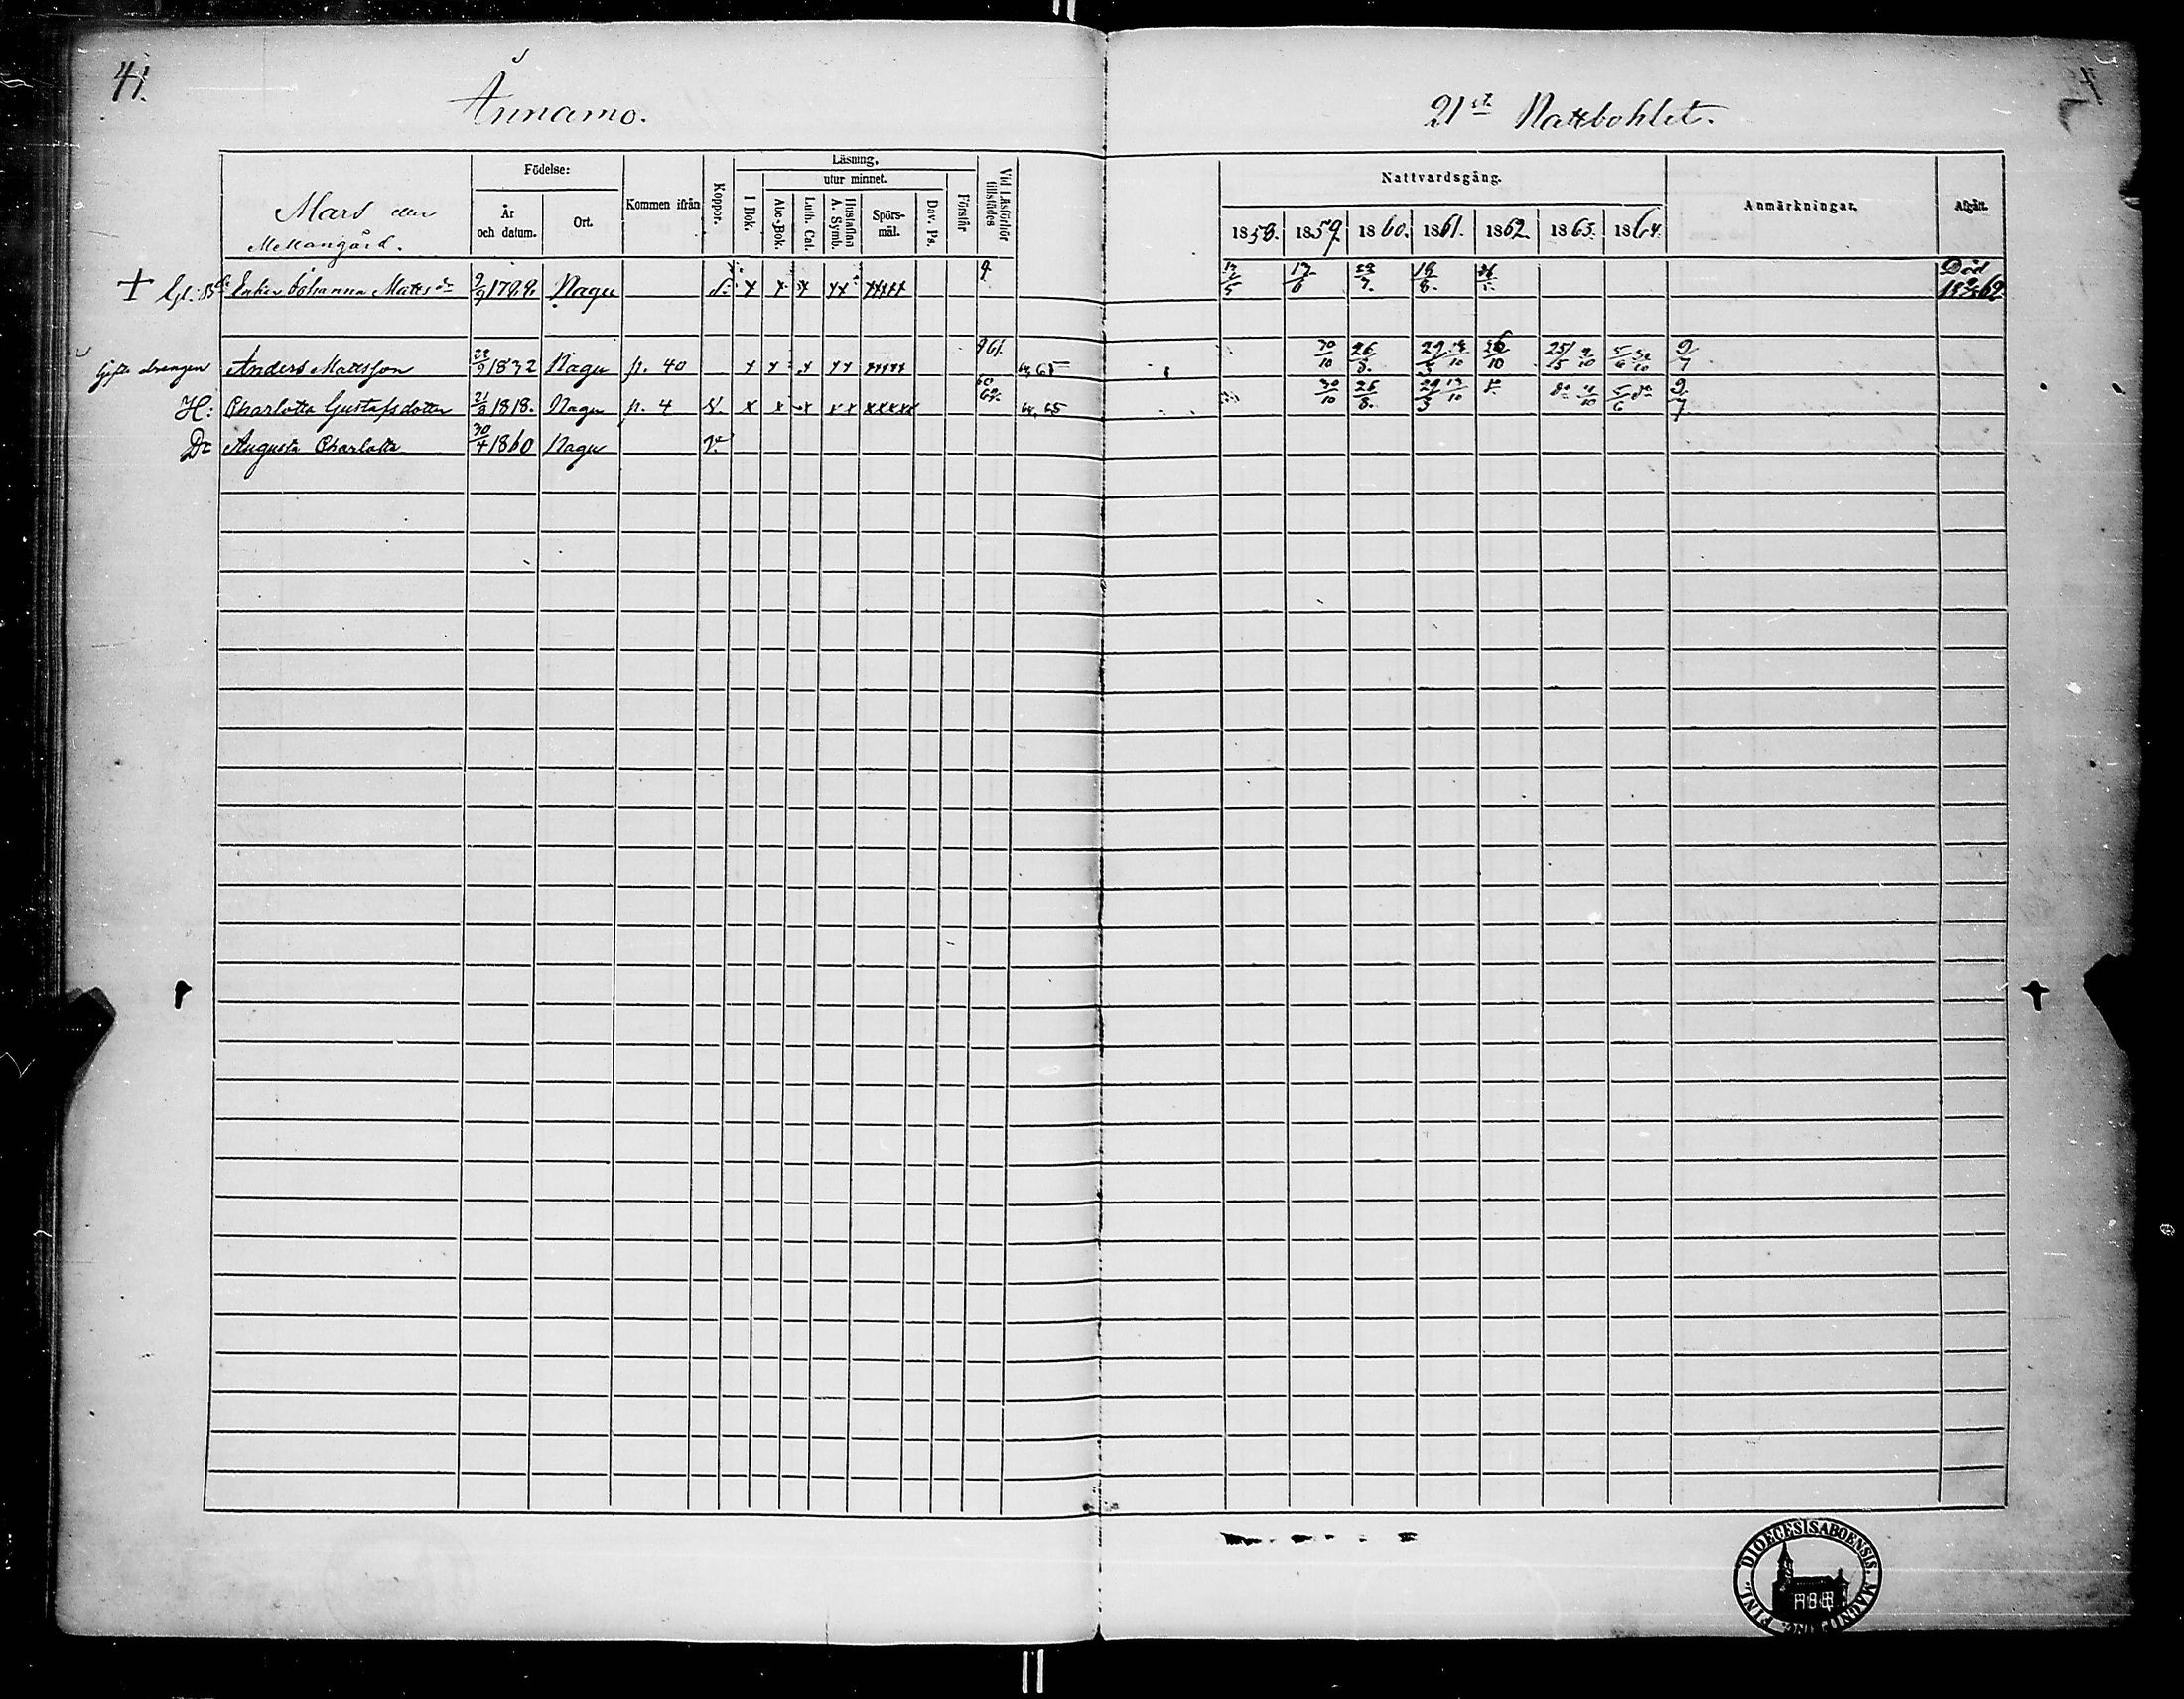 41.
Ånnamo.
21st Nattbohlet.
Mars eller
Mellangård.
Födelse:
År
och datum.
Ort.
Kommen ifrån
Koppor.
Läsning,
utur minnet.
I Bok.
Abc-Bok.
Luth. Cat.
Hustaflan
A. Symb.
Spörs-
mål.
Dav. Ps.
Förstår
Vid Läsförhör
tillstädes
Nattvardsgång.
1858. 1859. 1860. 1861. 1862. 1863. 1864.
Anmärkningar.
Afgått.
+ Enkan Johanna Mattsdr 9/9 1799. Nagu x x x xx xxxxx 17/6 Död
Gifte drengen Anders Mattsson 1832 Nagu p. 40 x x x xx xxxxx 61. 64, 65 30/10 26/8. 29/3 10 25 5/6 9/7
H: Charlotta Gustafsdotter 21/8 1818. Nagu p. 4 v. x x x xx xxxxx 64, 65 30/10 26/8. 29/3 10 do do 5/6 do 9/7
Dr Augusta Charlotta 30/4 1860 Nagu v.
FINL. DIOECESIS ABOENSIS MAGNI